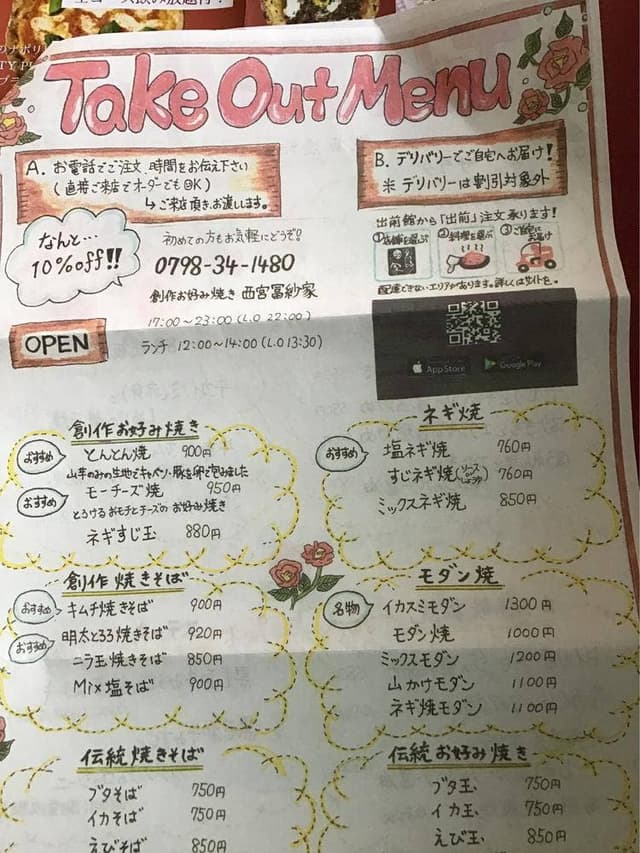 Take Out Menu
A. お電話でご注文、時間をお伝え下さい
(直接ご来店でオーダーでもOK)
↳ご来店頂き、お渡しします。
B. デリバリーでご自宅へお届け!
※ デリバリーは割引対象外
なんと...
10%off!!
初めての方もお気軽にどうぞ!
0798-34-1480
創作お好み焼き 西宮冨紗家
OPEN
17:00~23:00(L.O 22:00)
ランチ 12:00~14:00(L.O 13:30)
出前館から「出前」注文承ります!
①店舗を選ぶ
②料理を選ぶ
③ご自宅にお届け
配達できないエリアがあります。詳しくはサイトを。
App Store
Google Play
創作お好み焼き
おすすめ とんとん焼 900円
山芋のみの生地でキャベツ・豚を卵で包みました
おすすめ モーチーズ焼 950円
とろけるおモチとチーズのお好み焼き
ネギすじ玉 880円
ネギ焼
おすすめ 塩ネギ焼 760円
すじネギ焼 760円
ミックスネギ焼 850円
創作焼きそば
おすすめ キムチ焼きそば 900円
おすすめ 明太とろろ焼きそば 920円
ニラ玉焼きそば 850円
Mix塩そば 900円
モダン焼
名物 イカスミモダン 1300円
モダン焼 1000円
ミックスモダン 1200円
山かけモダン 1100円
ネギ焼モダン 1100円
伝統焼きそば
ブタそば 750円
イカそば 750円
えびそば 850円
伝統お好み焼き
ブタ玉 750円
イカ玉 750円
えび玉 850円